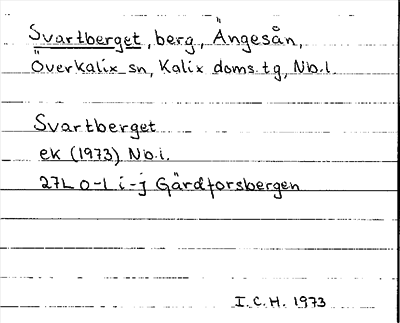 Svartberget, berg, Ängesån,
Överkalix sn, Kalix doms.tg, Nb.l.
Svartberget
ek (1973) Nb.i.
27L 0-1 i-j Gärdforsbergen
I.C.H. 1973